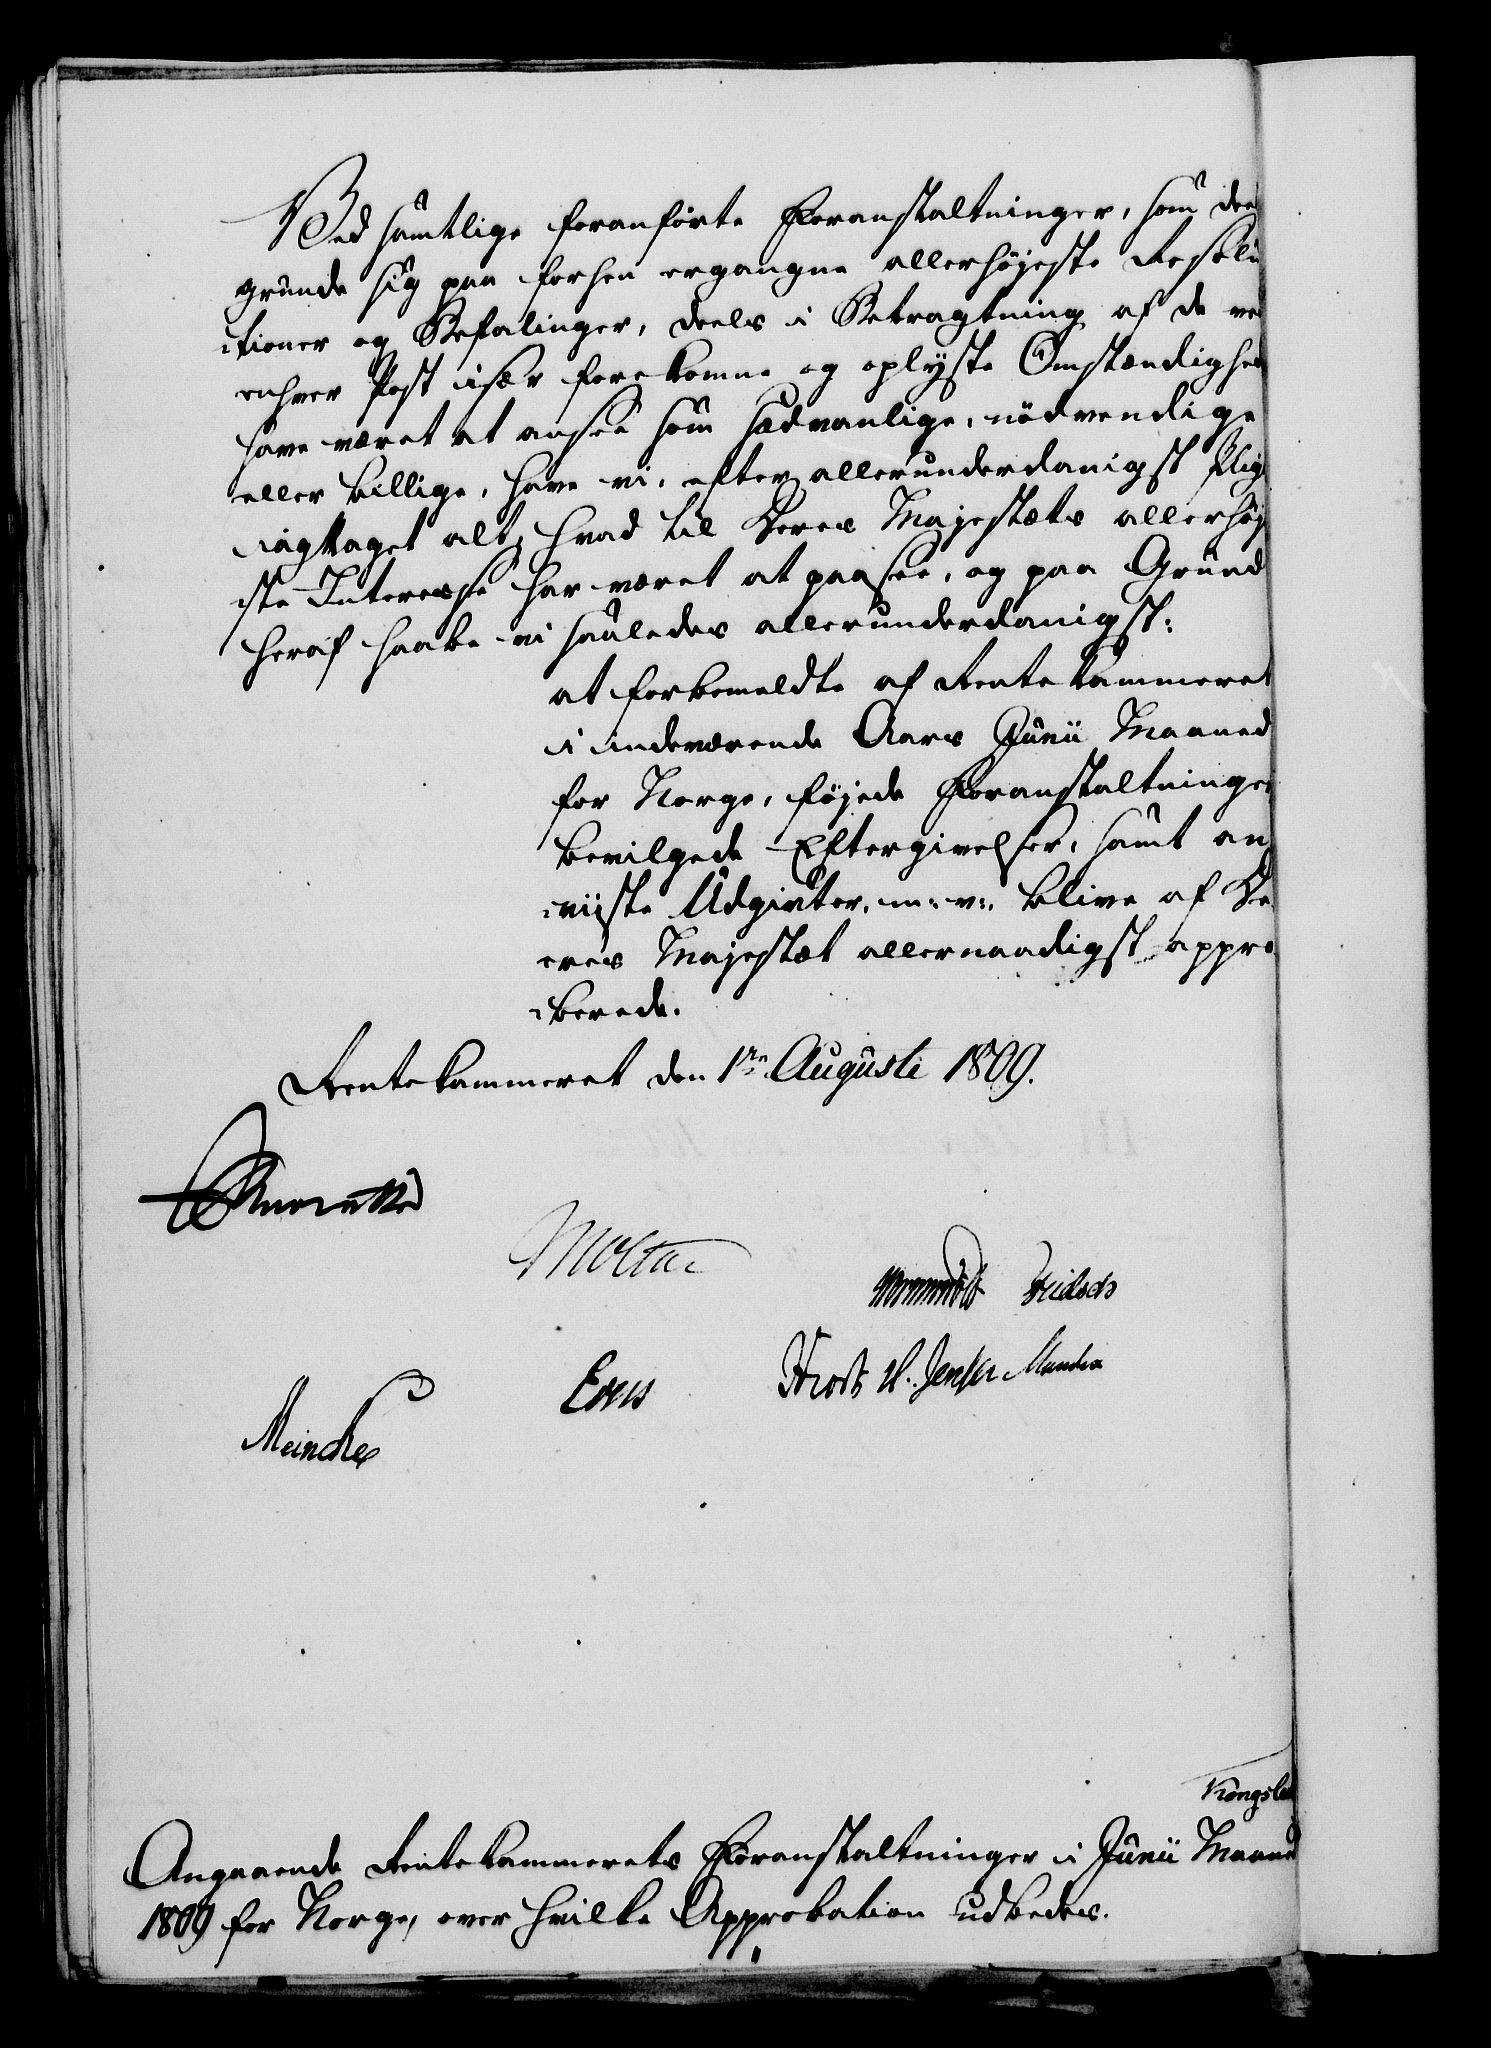 Ved samtlige foranførte Foranstaltninger, som dee
grunde sig paa forhen ergangne allerhøjeste Resolu
tioner og Befalinger, deels i Betragtning af de ved
enhver Post især forekomne og oplyste Omstændighed
have været at ansee som sædvanlige, nödvendige
eller billige, have vi, efter allerunderdanigst Pligt
iagttaget alt, hvad til Deres Majestæts allerhøj
ste Interesse har været at paasee, og paa Grund
heraf haabe vi saaledes allerunderdanigst:
at forbemeldte af Rentekammeret
i indeværende Aars Junii Maaned
for Norge, føjede Foranstaltninger
bevilgede Eftergivelser, samt an
viiste Udgivter, m: v: blive af De
eres Majestæt allernaadigst appro
berede.
Rentekammeret den 1te Augusti 1809.
Moltke
Wormskiold
Frost H. Jensen Munthe
Meincke
Kongsb
Angaaende Rentekammerets Foranstaltninger i Junii Maaned
1809 for Norge, over hvilke Approbation udbedes.